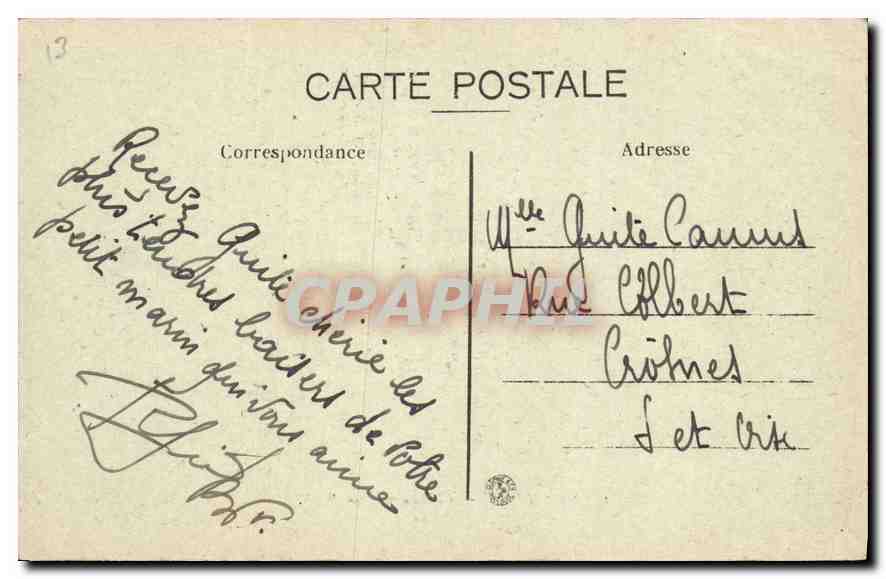 13
CARTE POSTALE
Correspondance
Adresse
Recevez Guite chérie les
plus tendres baisers de Votre
petit marin qui vous aime
Mlle Guite Camus
Rue Colbert
Crosnes
S et Oise
CPAPHIL